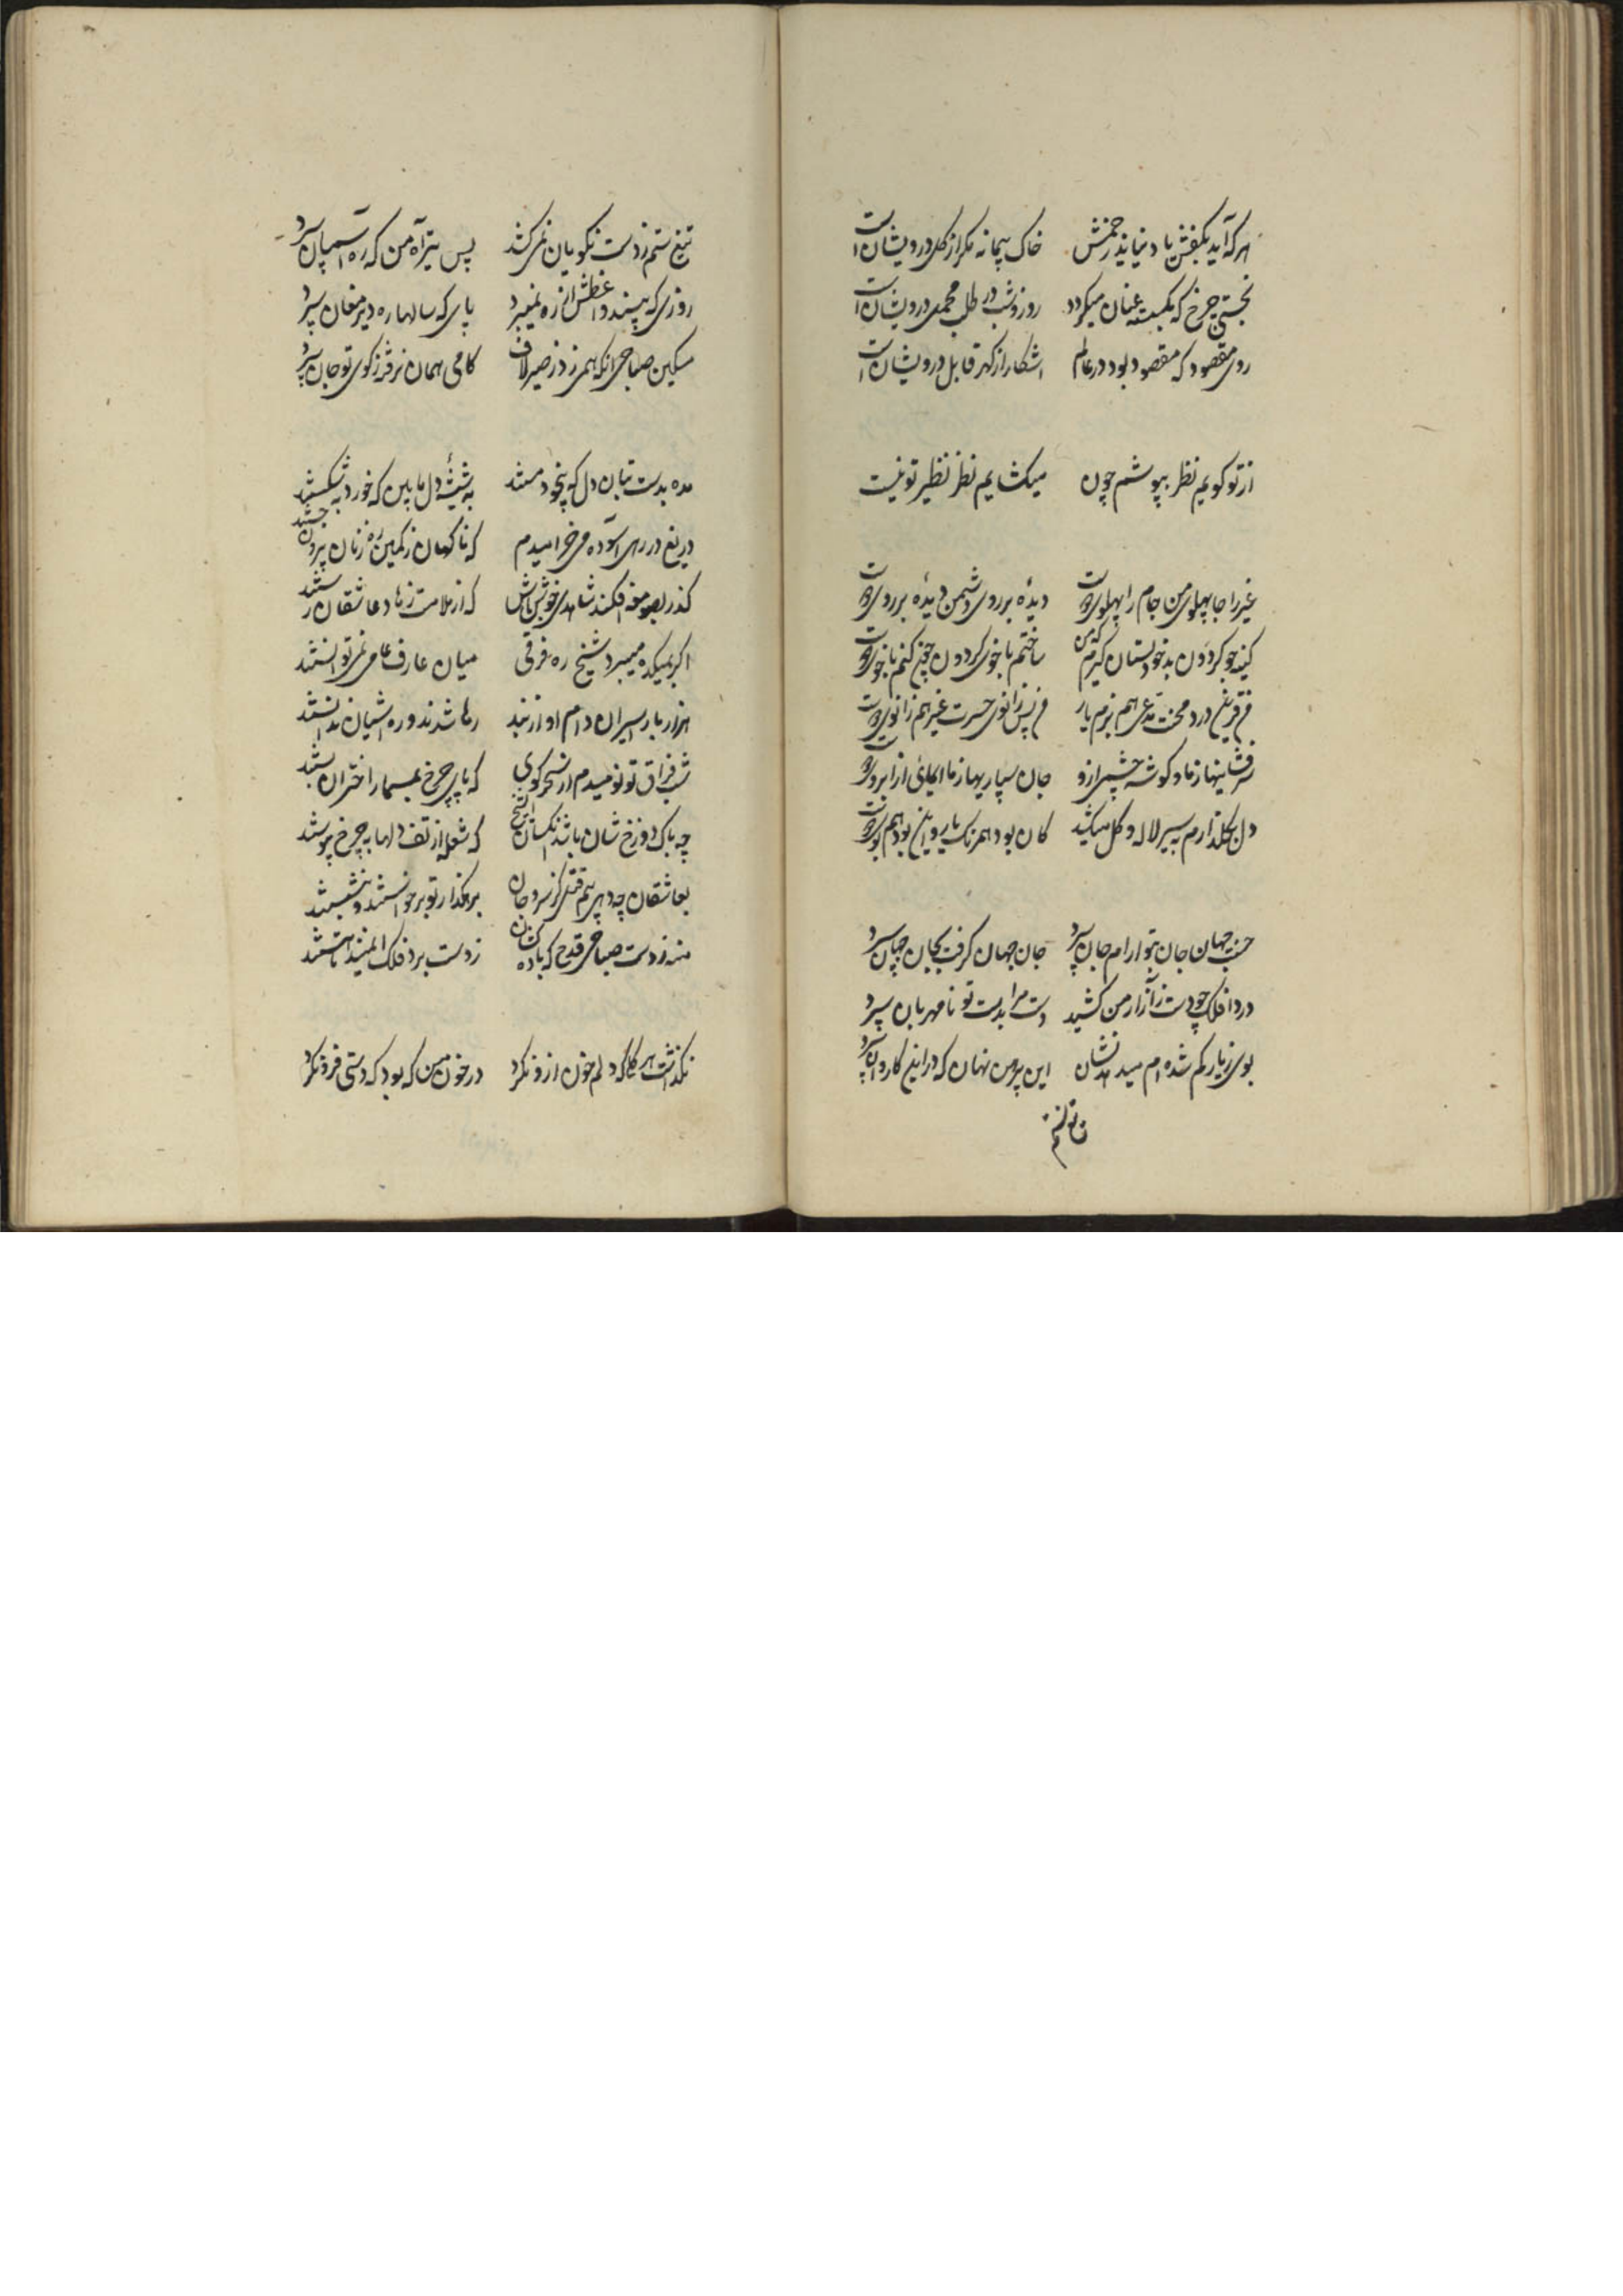 هرکه آید بکفش باد نیاید زخمش خاک پیمانه مکر از کل درویشان است
روز و شب در طلب محمدی درویشان است
روی مقصود که مقصود بود در عالم اشکارا ز کهر قابل درویشان است
از تو کویم نظر بپوشم چون میکشایم نظر نظیر تو نیست
غیر را جا پهلوی من جام را پهلوی دوست دیدهٔ بر روی دشمن دیدهٔ بر روی دوست
ساختم با خوی کردون چون کنم با خوی دوست
درد محنت مدعی هم بزم یار من پس زانوی حسرت غیر هم زانوی دوست
سرفشانیها ز ما و کوشه چشمی ازو جان سپاریها ز ما ایمائی از ابروی دوست
دل بکلزارم به سیر لاله و کل میکشد کان بود همرنک یار و این بود همبوی دوست
جان بتو ارام جان سپرد جان جهان کرفت بجان جهان سپرد
دردا فلک چو دست ز آزار من کشید دست مرا بدست تو نامهربان سپرد
بوی ز یار کم شده ام میدهد نشان این پیرهن نهان که در این کاروان سپرد
تیغ ستم ز دست نکویان نمی کشد پس تیر آه من که ره آسمان سپرد
روزی که پای که سالها ره دیر مغان سپرد
مسکین صباحی انکه همی زد ز صبر لاف کامی همان نرفته ز کوی تو جان سپرد
مده بدست بتان دل که بیخود و مستند به شیشهٔ دل ما بین که خورد بشکستند
دریغ در رهی آسوده می خرامیدم که ناکهان ز کمین ره زنان برون جستند
کذر بصومعه افکند شاهدی خوش باش که از ملامت زهاد عاشقان رستند
اکر بمیکده میبرد شیخ ره فرقی میان عارف و عامی نمی توانستند
هزار بار اسیران دام او از بند رها شدند و ره اشیان ندانستند
شب فراق تو نومیدم از سحر کوی که پای چرخ بمسمار اختران بستند
چه باک دوزخ شان باشد که شعله از تف دلها به چرخ پیوستند
بعاشقان چه دهی بیم قتل کز سر و جان برهکذار تو برخواستند و بنشستند
منه ز دست صباحی قدح که باده کشان ز دست برد فلک ایمنند تا هستند
نکذاشت هر کیا که دلم خون ازو نکرد در خون من که بود که دستی فرو نکرد